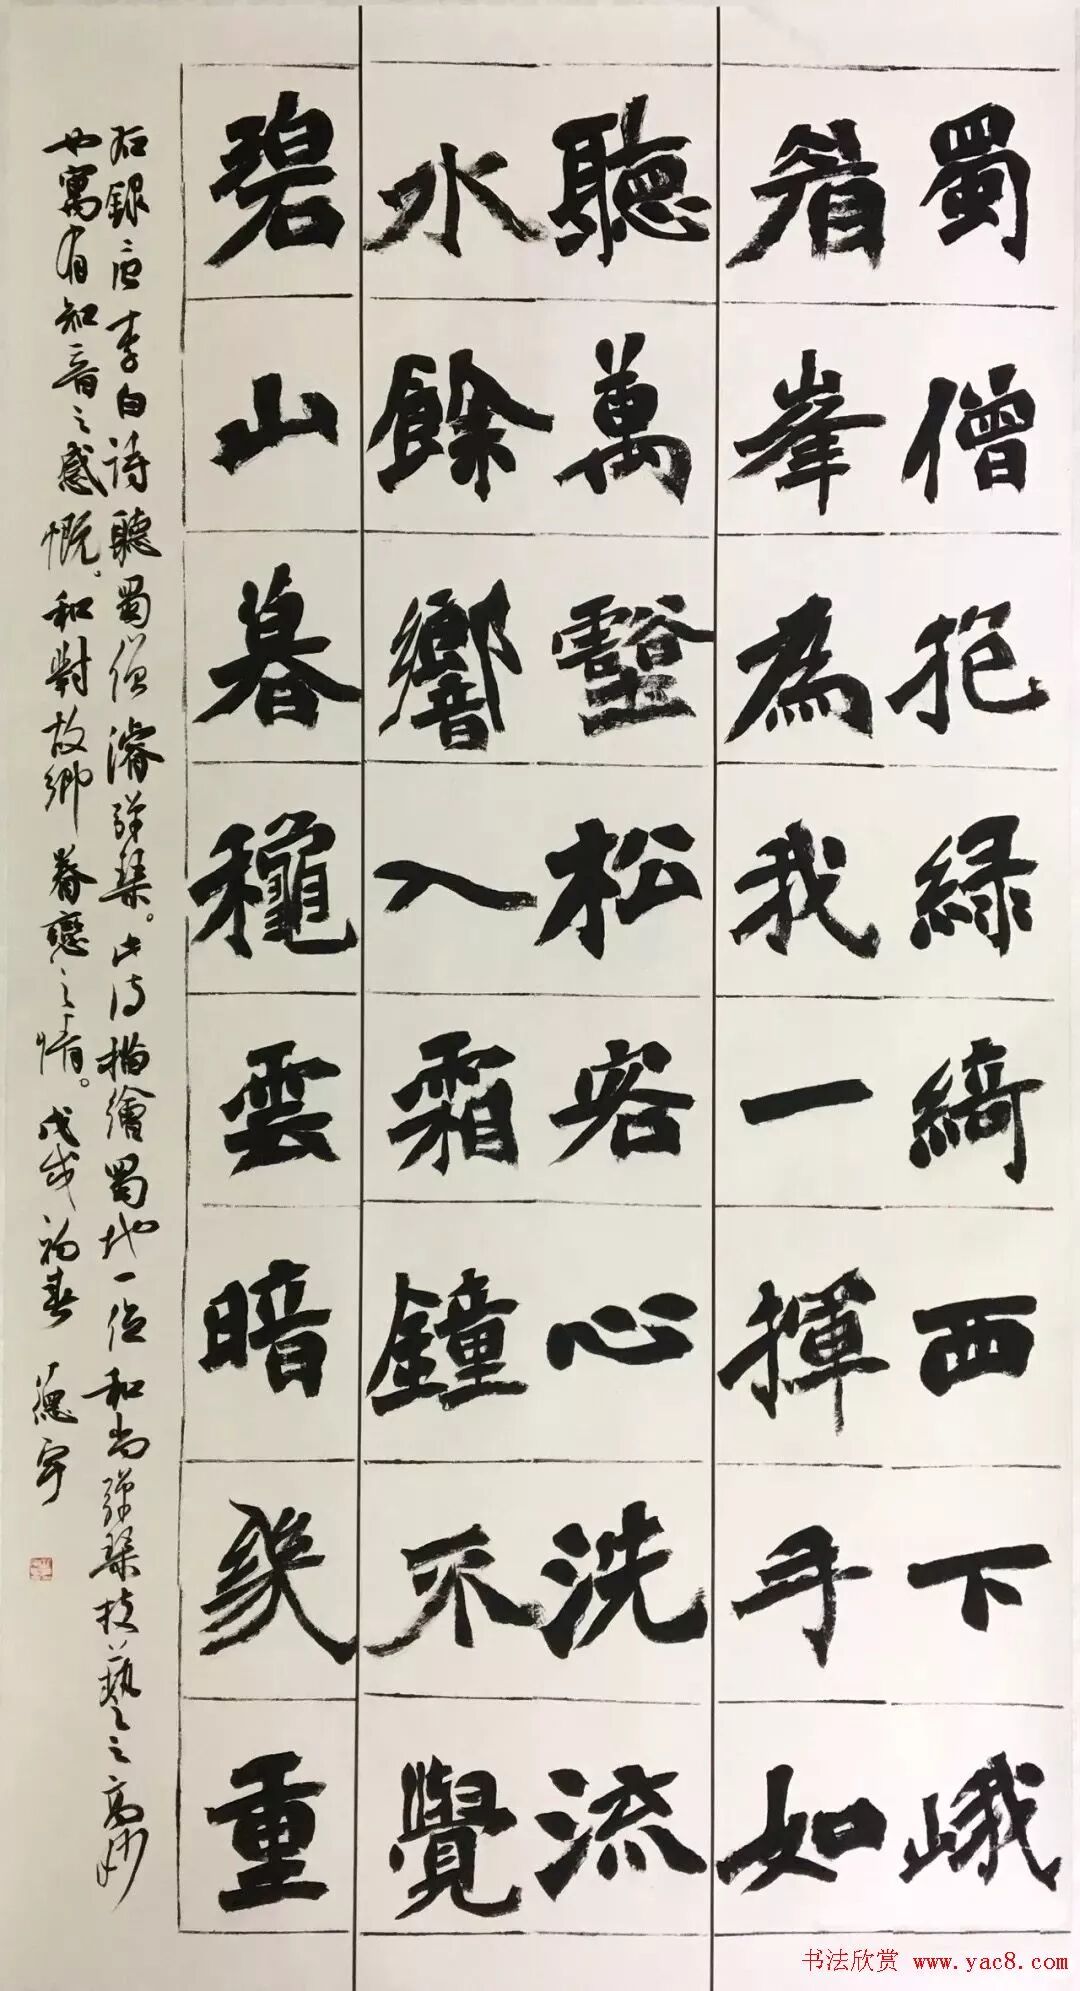 蜀僧抱緑綺西下峨
眉峯為我一揮手如
聽萬壑松客心洗流
水餘響入霜鐘不覺
碧山暮穐雲暗幾重
右錄唐李白詩聽蜀僧濬彈琴。此詩描繪蜀地一位和尚彈琴技藝之高妙
也寓有知音之感慨。和對故鄉眷戀之情。戊戌初春 德宇
书法欣赏 www.yac8.com